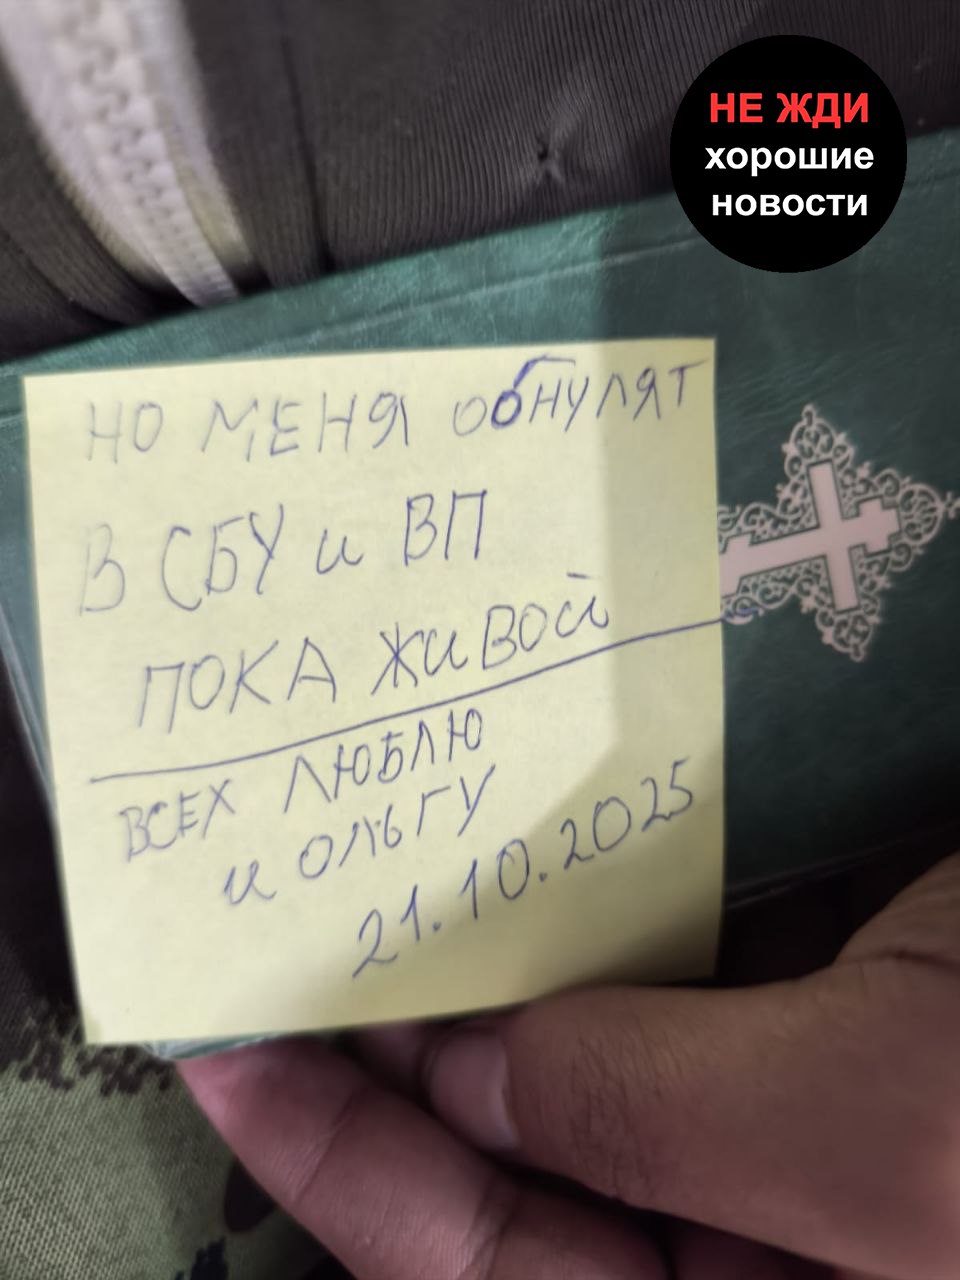 НЕ ЖДИ
хорошие
новости
НО МЕНЯ ОбНУЛЯТ
В СБУ и ВП
ПОКА ЖИВОЙ
ВСЕХ ЛЮБЛЮ
и ОЛЬГУ
21.10.2025